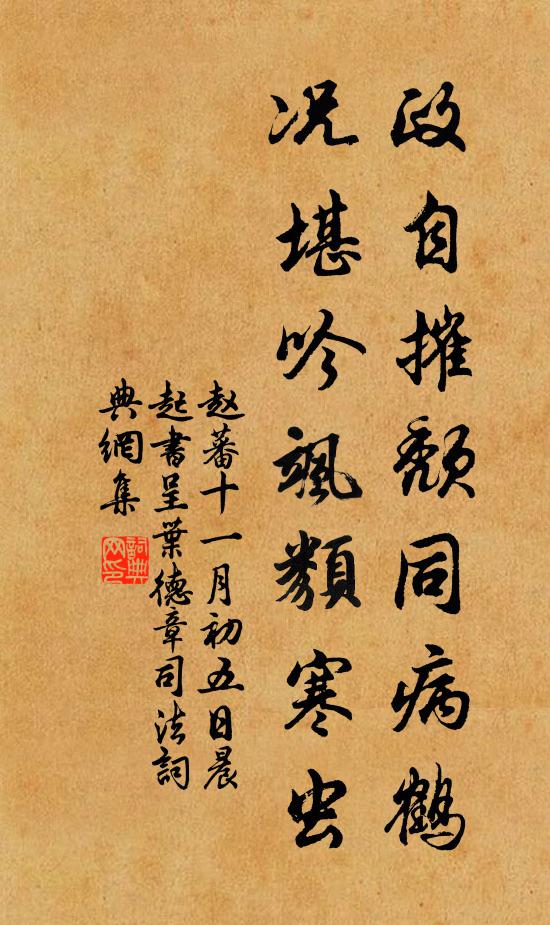 政自摧颓同病鹤
况堪吟飒类寒虫
赵蕃十一月初五日晨
起书呈叶德章司法词
典网集
词典网印